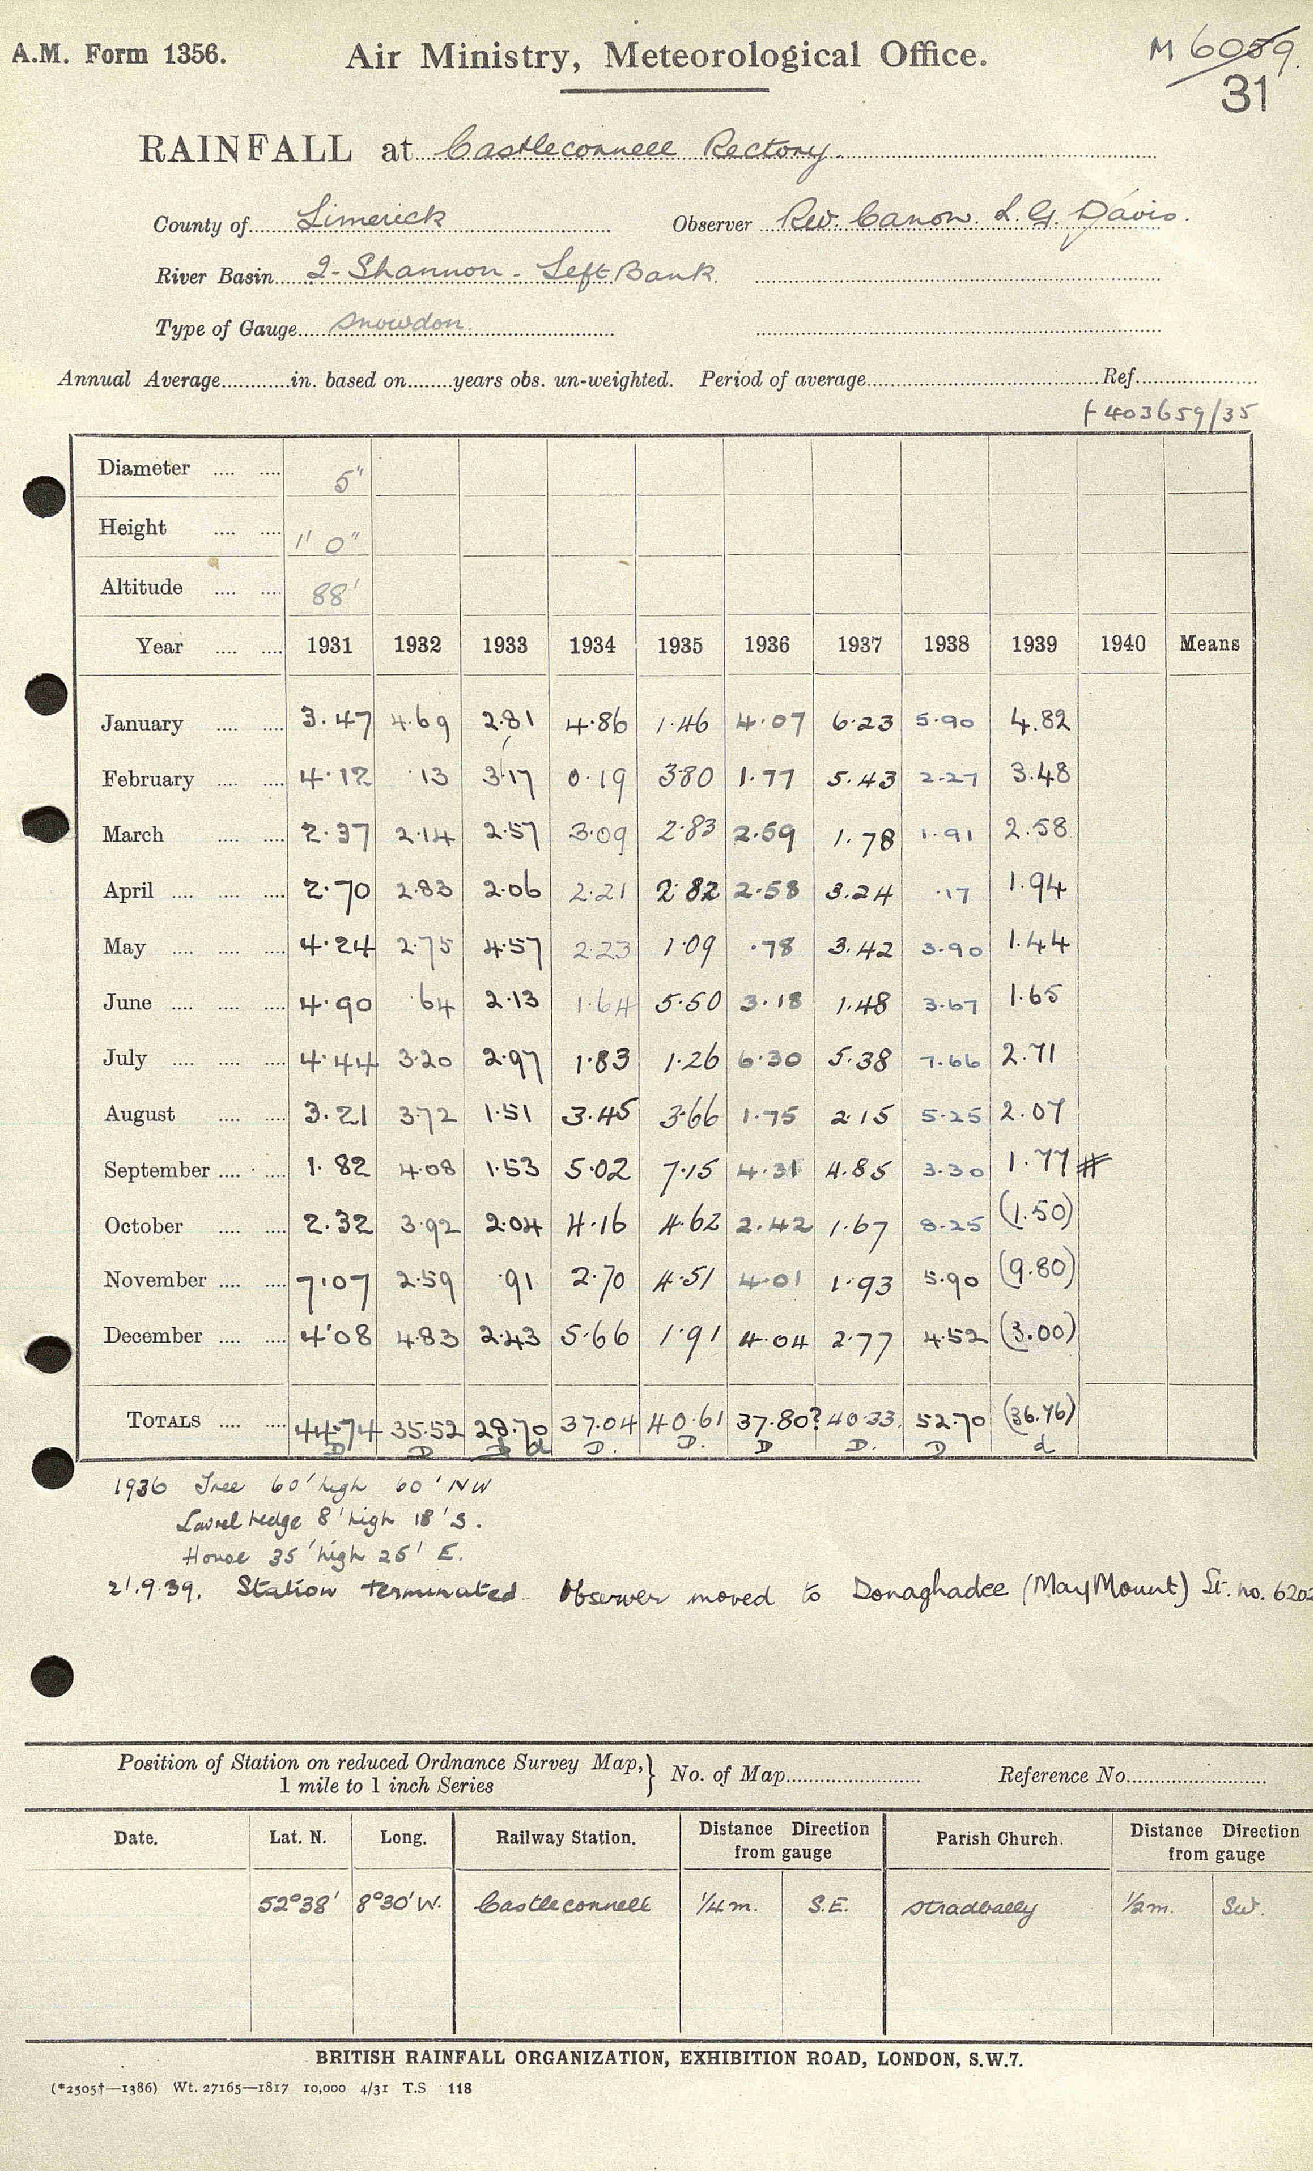 A.M. Form 1356.
Air Ministry, Meteorological Office.
M 6059.
31
RAINFALL at Castleconnell Rectory.
County of Limerick Observer Rev. Canon L. G. Davis.
River Basin 2 - Shannon - Left Bank
Type of Gauge Snowdon
Annual Average in. based on years obs. un-weighted. Period of average Ref.
f 403659/35
Diameter 5"
Height 1' 0"
Altitude 88'
Year 1931 1932 1933 1934 1935 1936 1937 1938 1939 1940 Means
January 3.47 4.69 2.81 4.86 1.46 4.07 6.23 5.90 4.82
February 4.12 .13 3.17 0.19 3.80 1.77 5.43 2.27 3.48
March 2.37 2.14 2.57 3.09 2.83 2.59 1.78 1.91 2.58
April 2.70 2.83 2.06 2.21 2.82 2.58 3.24 .17 1.94
May 4.24 2.75 4.57 2.23 1.09 .78 3.42 3.90 1.44
June 4.90 .64 2.13 1.64 5.50 3.18 1.48 3.67 1.65
July 4.44 3.20 2.97 1.83 1.26 6.30 5.38 7.66 2.71
August 3.21 3.72 1.51 3.45 3.66 1.75 2.15 5.25 2.07
September 1.82 4.08 1.53 5.02 7.15 4.31 4.85 3.30 1.77 #
October 2.32 3.92 2.04 4.16 4.62 2.42 1.67 8.25 (1.50)
November 7.07 2.59 .91 2.70 4.51 4.01 1.93 5.90 (9.80)
December 4.08 4.83 2.43 5.66 1.91 4.04 2.77 4.52 (3.00)
TOTALS 44.74 35.52 28.70 37.04 40.61 37.80? 40.33 52.70 (36.76)
D D D d D. D. D D. D d
1936 Tree 60' high 60' NW
Laurel hedge 8' high 18' S.
House 35' high 25' E.
21.9.39. Station terminated. Observer moved to Donaghadee (May Mount) St. no. 6202
Position of Station on reduced Ordnance Survey Map,} No. of Map Reference No.
1 mile to 1 inch Series
Date. Lat. N. Long. Railway Station. Distance Direction from gauge Parish Church. Distance Direction from gauge
52°38' 8°30'W. Castleconnell 1/4 m. S.E. Stradbally 1/2 m. SW.
BRITISH RAINFALL ORGANIZATION, EXHIBITION ROAD, LONDON, S.W.7.
(*2505†—1386) Wt. 27165—1817 10,000 4/31 T.S 118